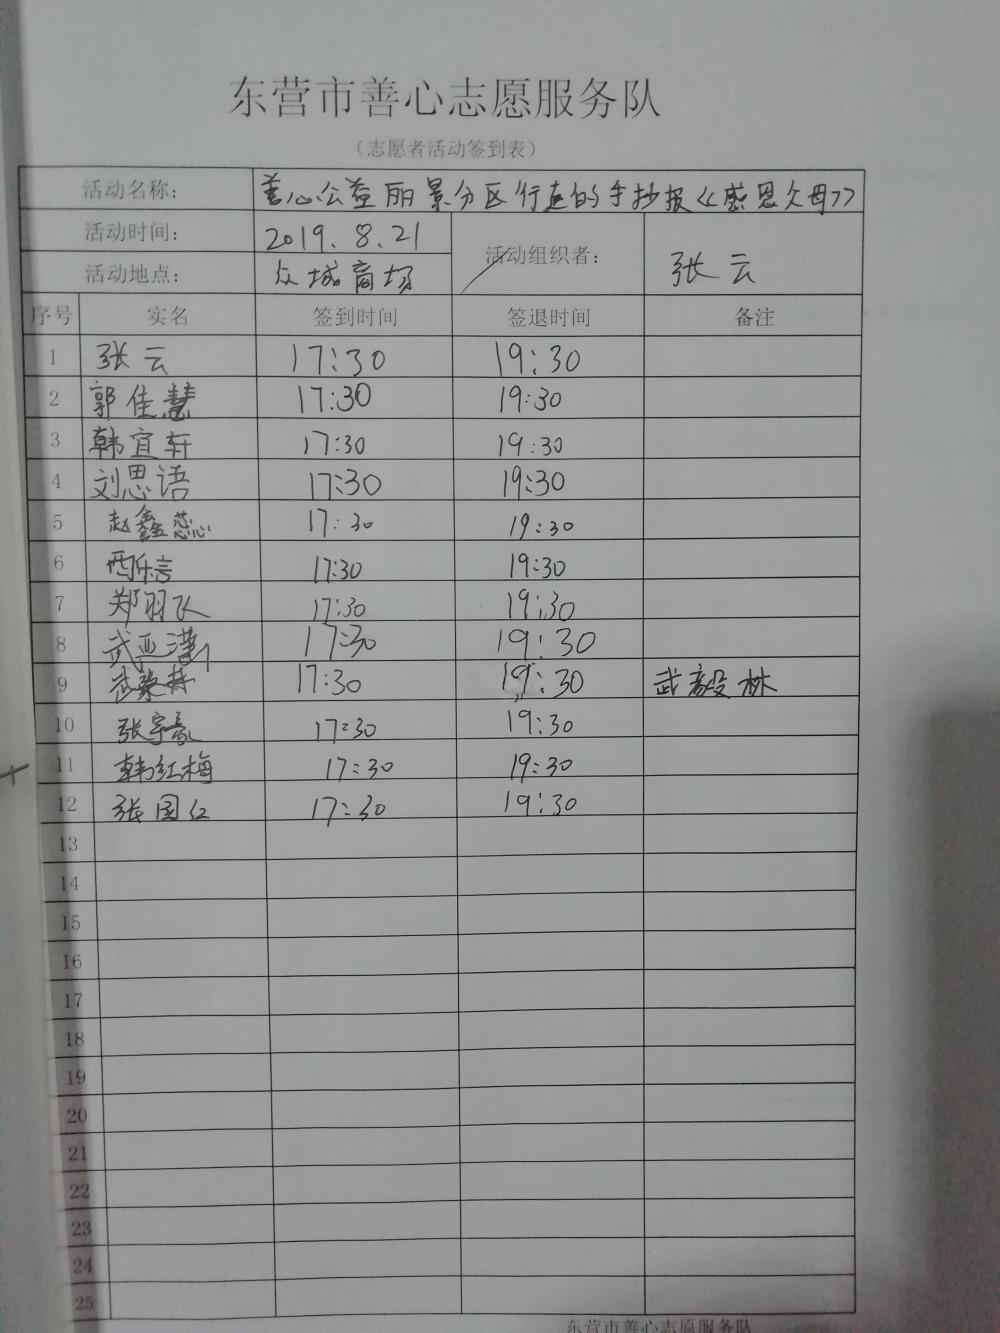 东营市善心志愿服务队
（志愿者活动签到表）
活动名称： 善心公益丽景分区行走的手抄报《感恩父母》
活动时间： 2019.8.21 活动组织者： 张云
活动地点： 众城商场
序号 实名 签到时间 签退时间 备注
1 张云 17:30 19:30
2 郭佳慧 17:30 19:30
3 韩宜轩 17:30 19:30
4 刘思语 17:30 19:30
5 赵鑫蕊 17:30 19:30
6 17:30 19:30
7 郑羽飞 17:30 19:30
8 武亚潇 17:30 19:30
9 17:30 19:30 武毅林
10 张宇豪 17:30 19:30
11 韩红梅 17:30 19:30
12 张国红 17:30 19:30
13
14
15
16
17
18
19
20
21
22
23
24
25
东营市善心志愿服务队